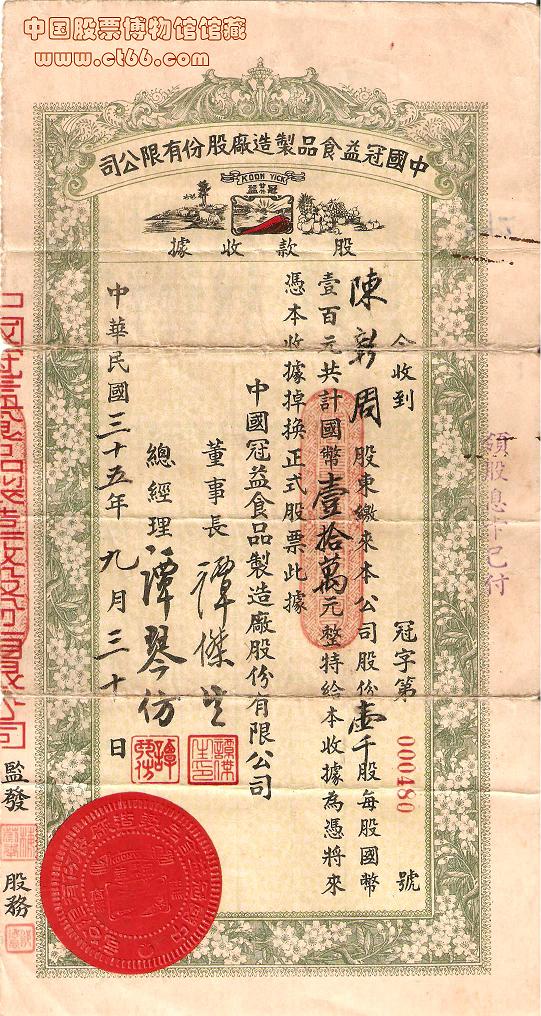 中国股票博物馆馆藏
www.ct66.com
中國冠益食品製造廠股份有限公司
KOON YICK
冠益
股款收據
冠字第000480號
今收到
陳彰周股東繳來本公司股份壹千股每股國幣
壹百元共計國幣壹拾萬元整特給本收據為憑將來
憑本收據掉換正式股票此據
中國冠益食品製造廠股份有限公司
董事長譚傑生
總經理譚琴仿
中華民國三十五年九月三十日
領股息卡已付
監發
股務